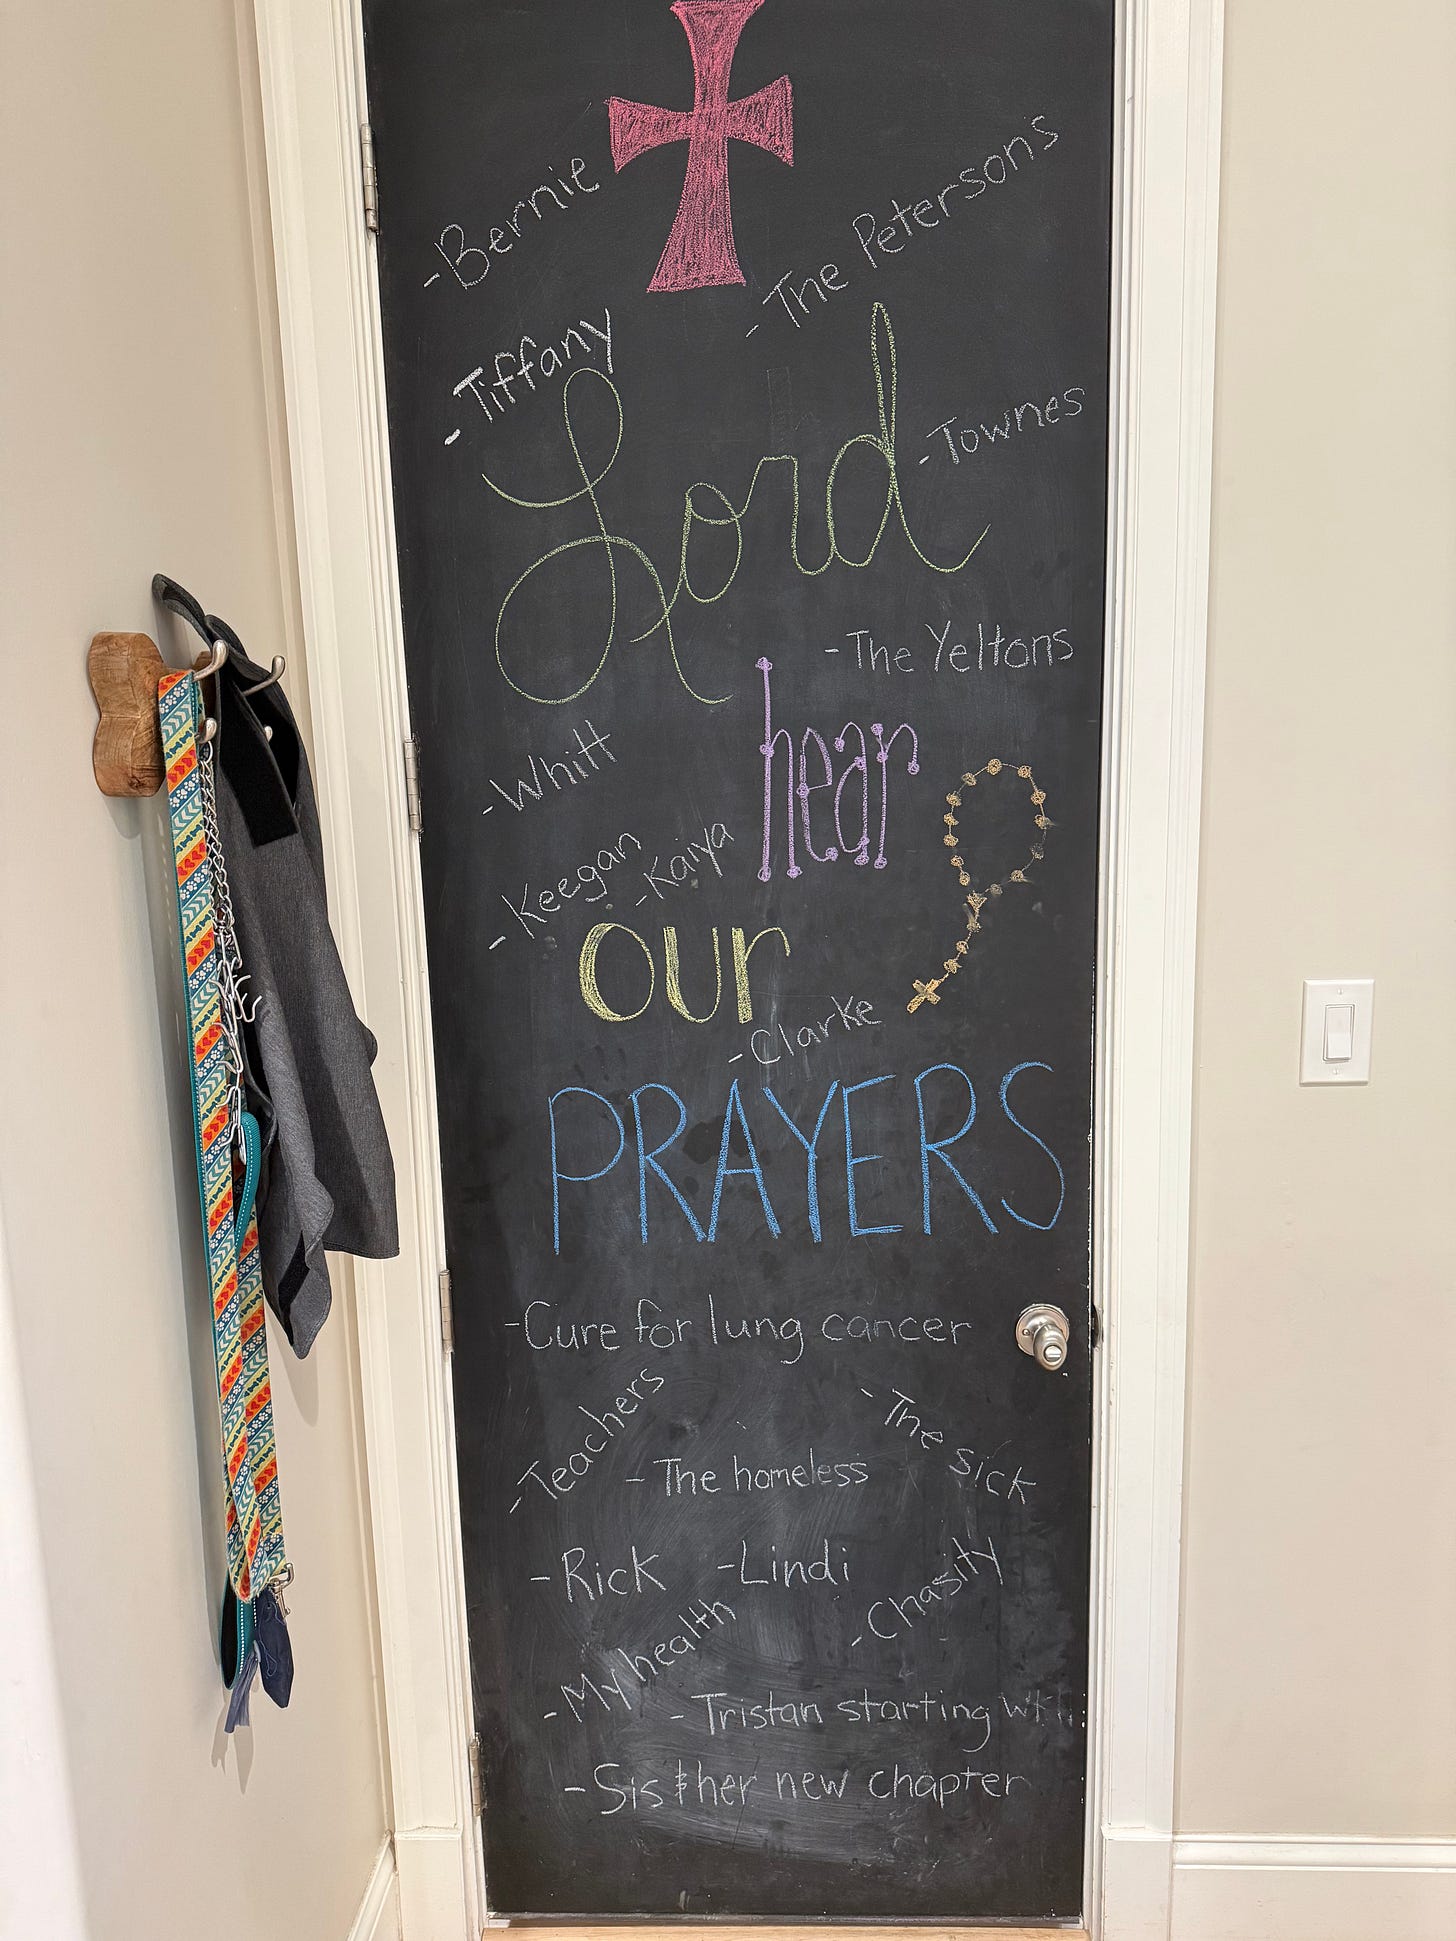 -Bernie
-The Petersons
-Tiffany
-Townes
Lord
-The Yeltons
hear
-Whitt
-Keegan
-Kaiya
our
-Clarke
PRAYERS
-Cure for lung cancer
-Teachers
-The sick
-The homeless
-Rick
-Lindi
-Chasity
-My health
-Tristan starting
-Sis & her new chapter